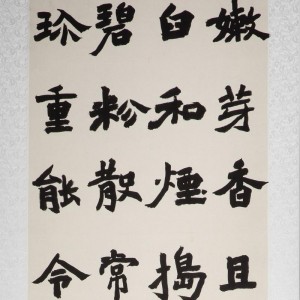 嫩芽香且
臼和煙搗
碧粉散常
珍重能令